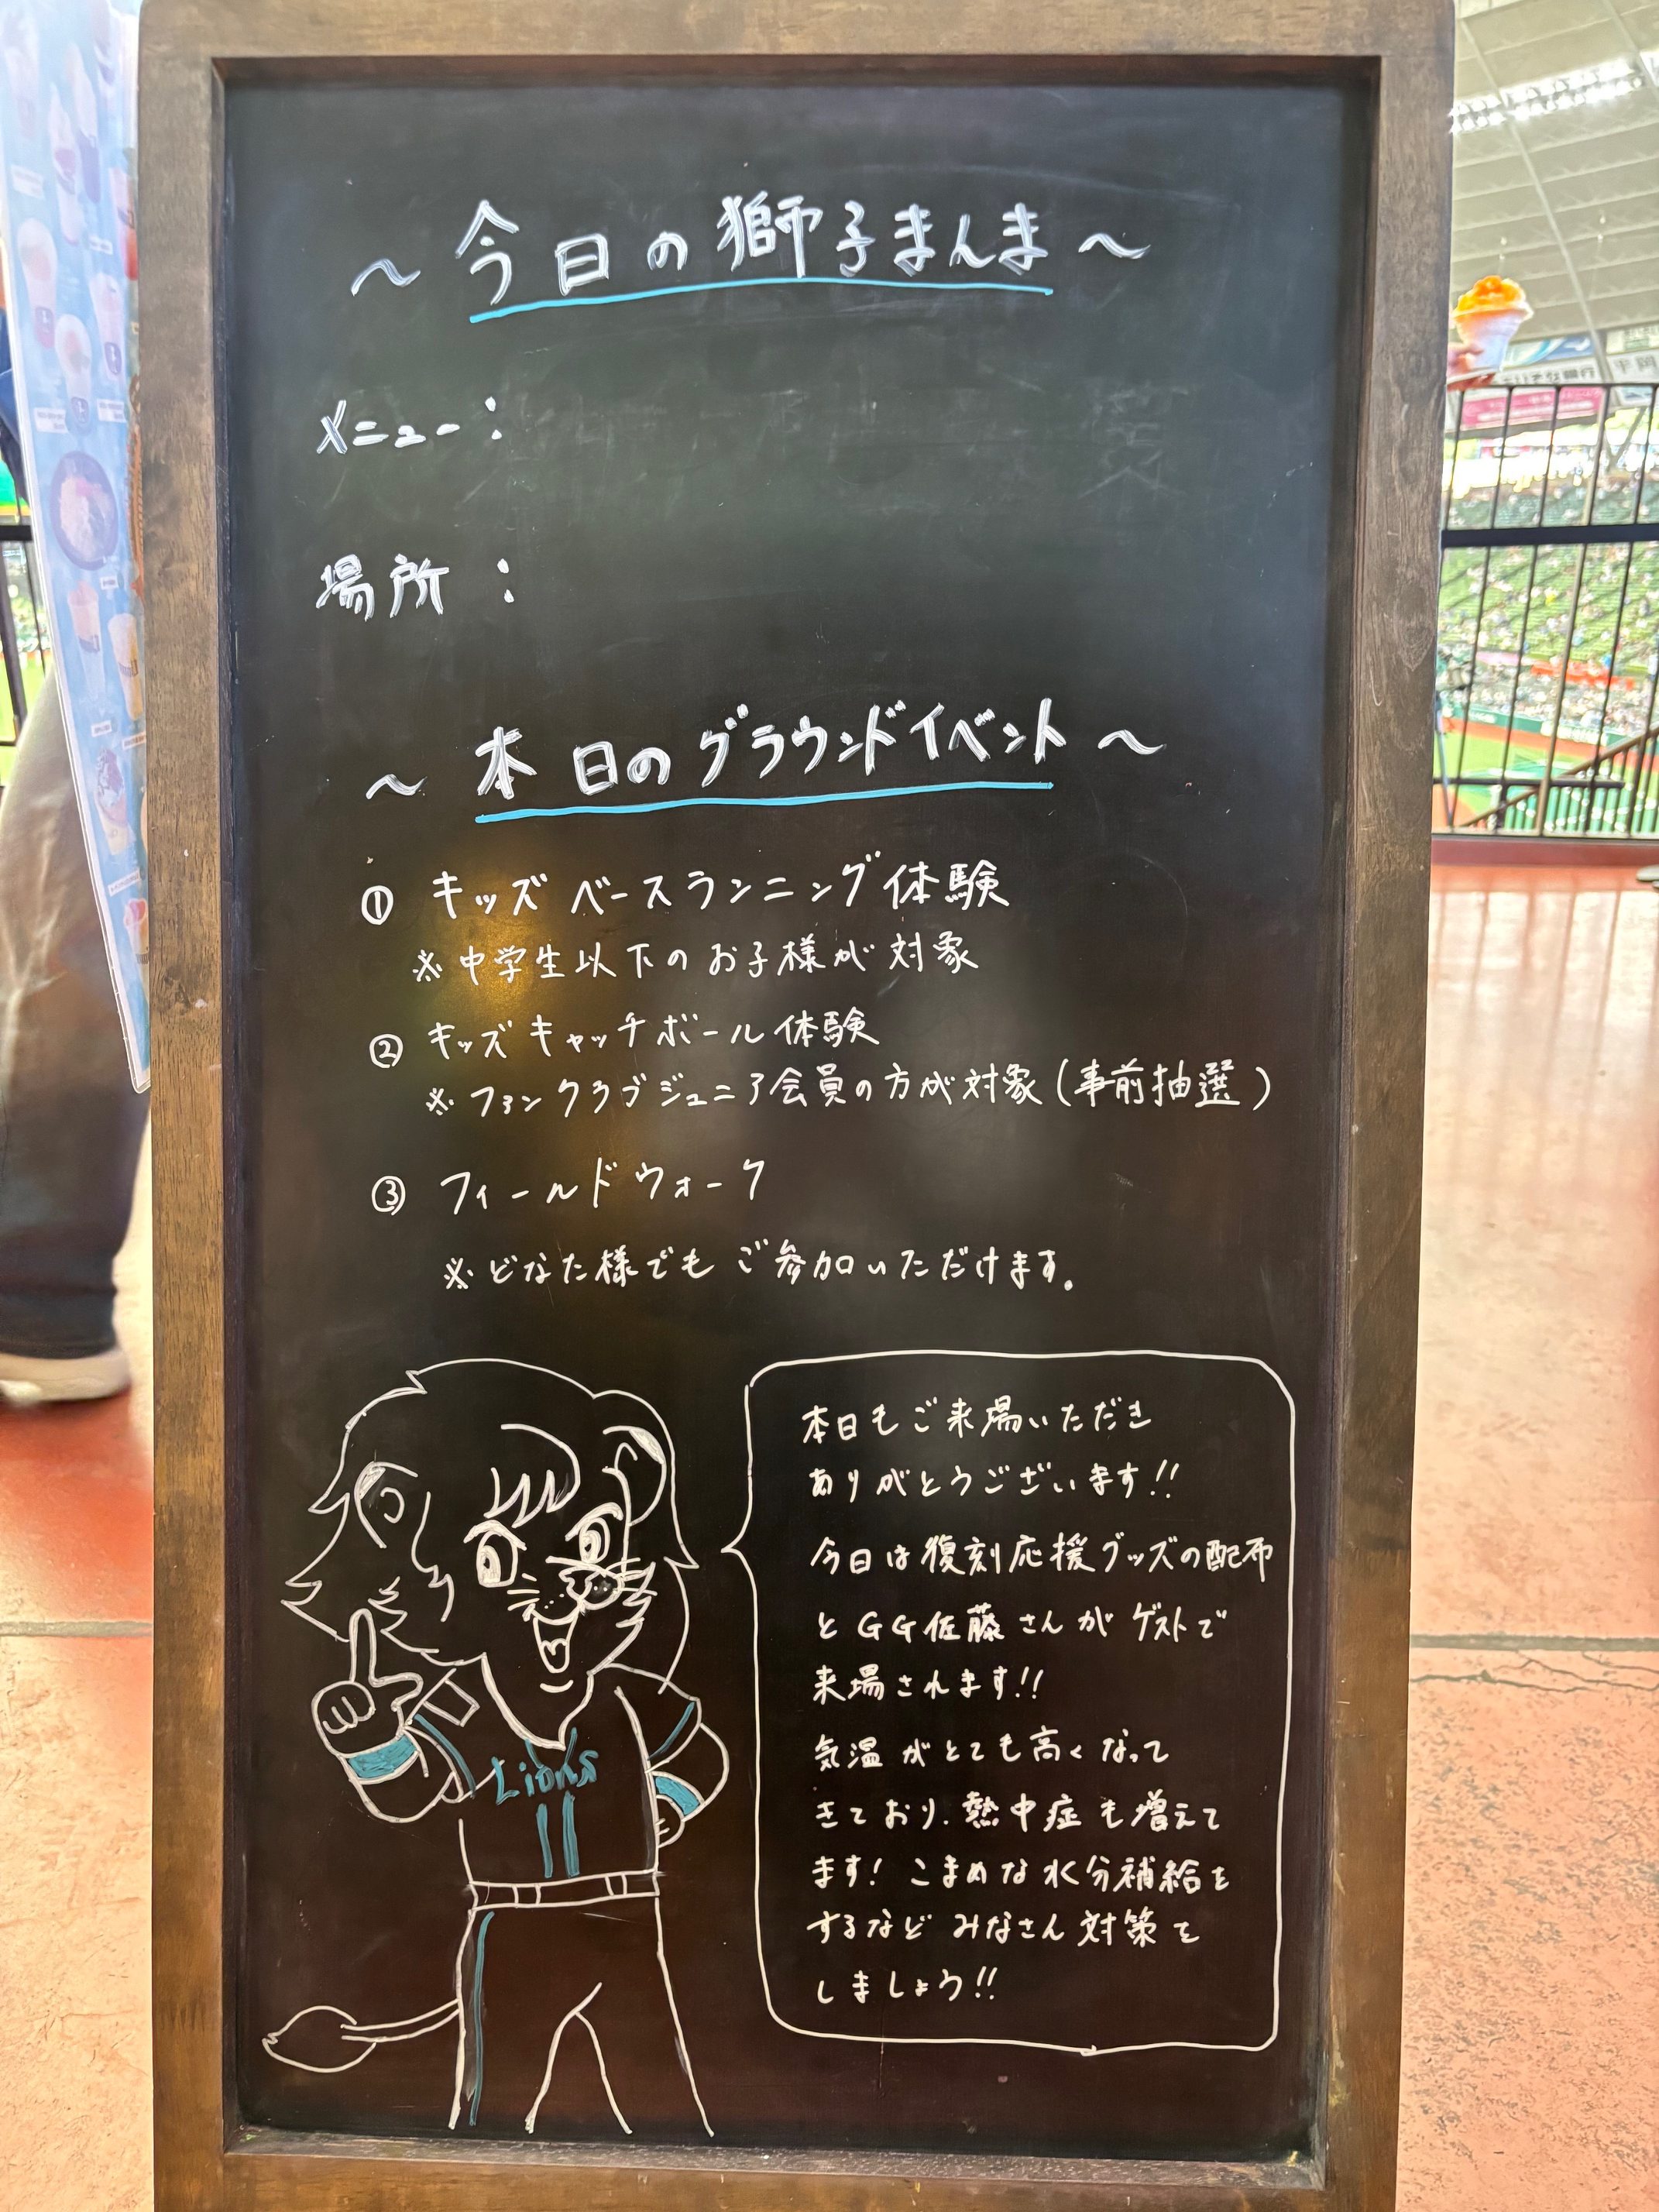 ～今日の獅子まんま～
メニュー：
場所：
～本日のグラウンドイベント～
① キッズベースランニング体験
※中学生以下のお子様が対象
② キッズキャッチボール体験
※ファンクラブジュニア会員の方が対象（事前抽選）
③ フィールドウォーク
※どなた様でもご参加いただけます。
本日もご来場いただき
ありがとうございます!!
今日は復刻応援グッズの配布
とGG佐藤さんがゲストで
来場されます!!
気温がとても高くなって
きており、熱中症も増えて
ます！こまめな水分補給を
するなどみなさん対策を
しましょう!!
Lions